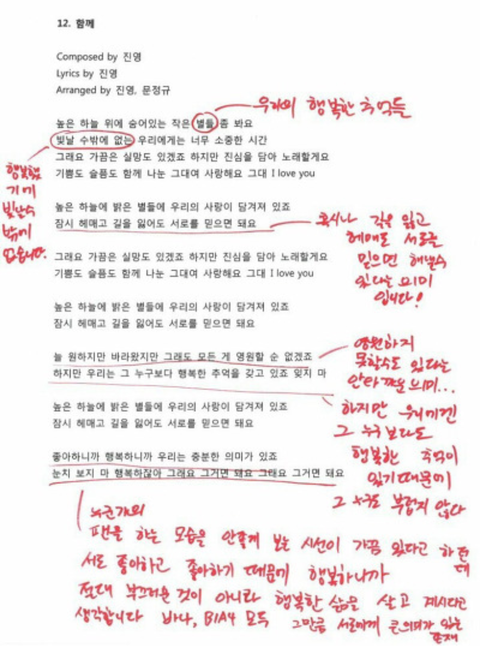 12. 함께
Composed by 진영
Lyrics by 진영
Arranged by 진영, 문정규
우리의 행복한 추억들
높은 하늘 위에 숨어있는 작은 별들 좀 봐요
빛날 수밖에 없는 우리에게는 너무 소중한 시간
그래요 가끔은 실망도 있겠죠 하지만 진심을 담아 노래할게요
기쁨도 슬픔도 함께 나눈 그대여 사랑해요 그대 I love you
행복했
기에
빛날수
밖에
없습니다.
높은 하늘에 밝은 별들에 우리의 사랑이 담겨져 있죠
잠시 헤매고 길을 잃어도 서로를 믿으면 돼요
혹시나 길을 잃고
헤매도 서로를
믿으면 해낼수
있다는 의미
입니다!
그래요 가끔은 실망도 있겠죠 하지만 진심을 담아 노래할게요
기쁨도 슬픔도 함께 나눈 그대여 사랑해요 그대 I love you
높은 하늘에 밝은 별들에 우리의 사랑이 담겨져 있죠
잠시 헤매고 길을 잃어도 서로를 믿으면 돼요
늘 원하지만 바라왔지만 그래도 모든 게 영원할 순 없겠죠
하지만 우리는 그 누구보다 행복한 추억을 갖고 있죠 잊지 마
영원하지
못할수도 있다는
안타까운 의미...
높은 하늘에 밝은 별들에 우리의 사랑이 담겨져 있죠
잠시 헤매고 길을 잃어도 서로를 믿으면 돼요
하지만 우리에겐
그 누구보다도
행복한 추억이
있기때문에
그 누구도 부럽지 않다
좋아하니까 행복하니까 우리는 충분한 의미가 있죠
눈치 보지 마 행복하잖아 그래요 그거면 돼요 그래요 그거면 돼요
누군가의
팬을 하는 모습을 안좋게 보는 시선이 가끔 있다고 하던데
서로 좋아하고 좋아하기 때문에 행복하니까
절대 부끄러운 것이 아니라 행복한 삶을 살고 계시다고
생각합니다 바나, B1A4 모두 그만큼 서로에게 큰의미가 있는
존재